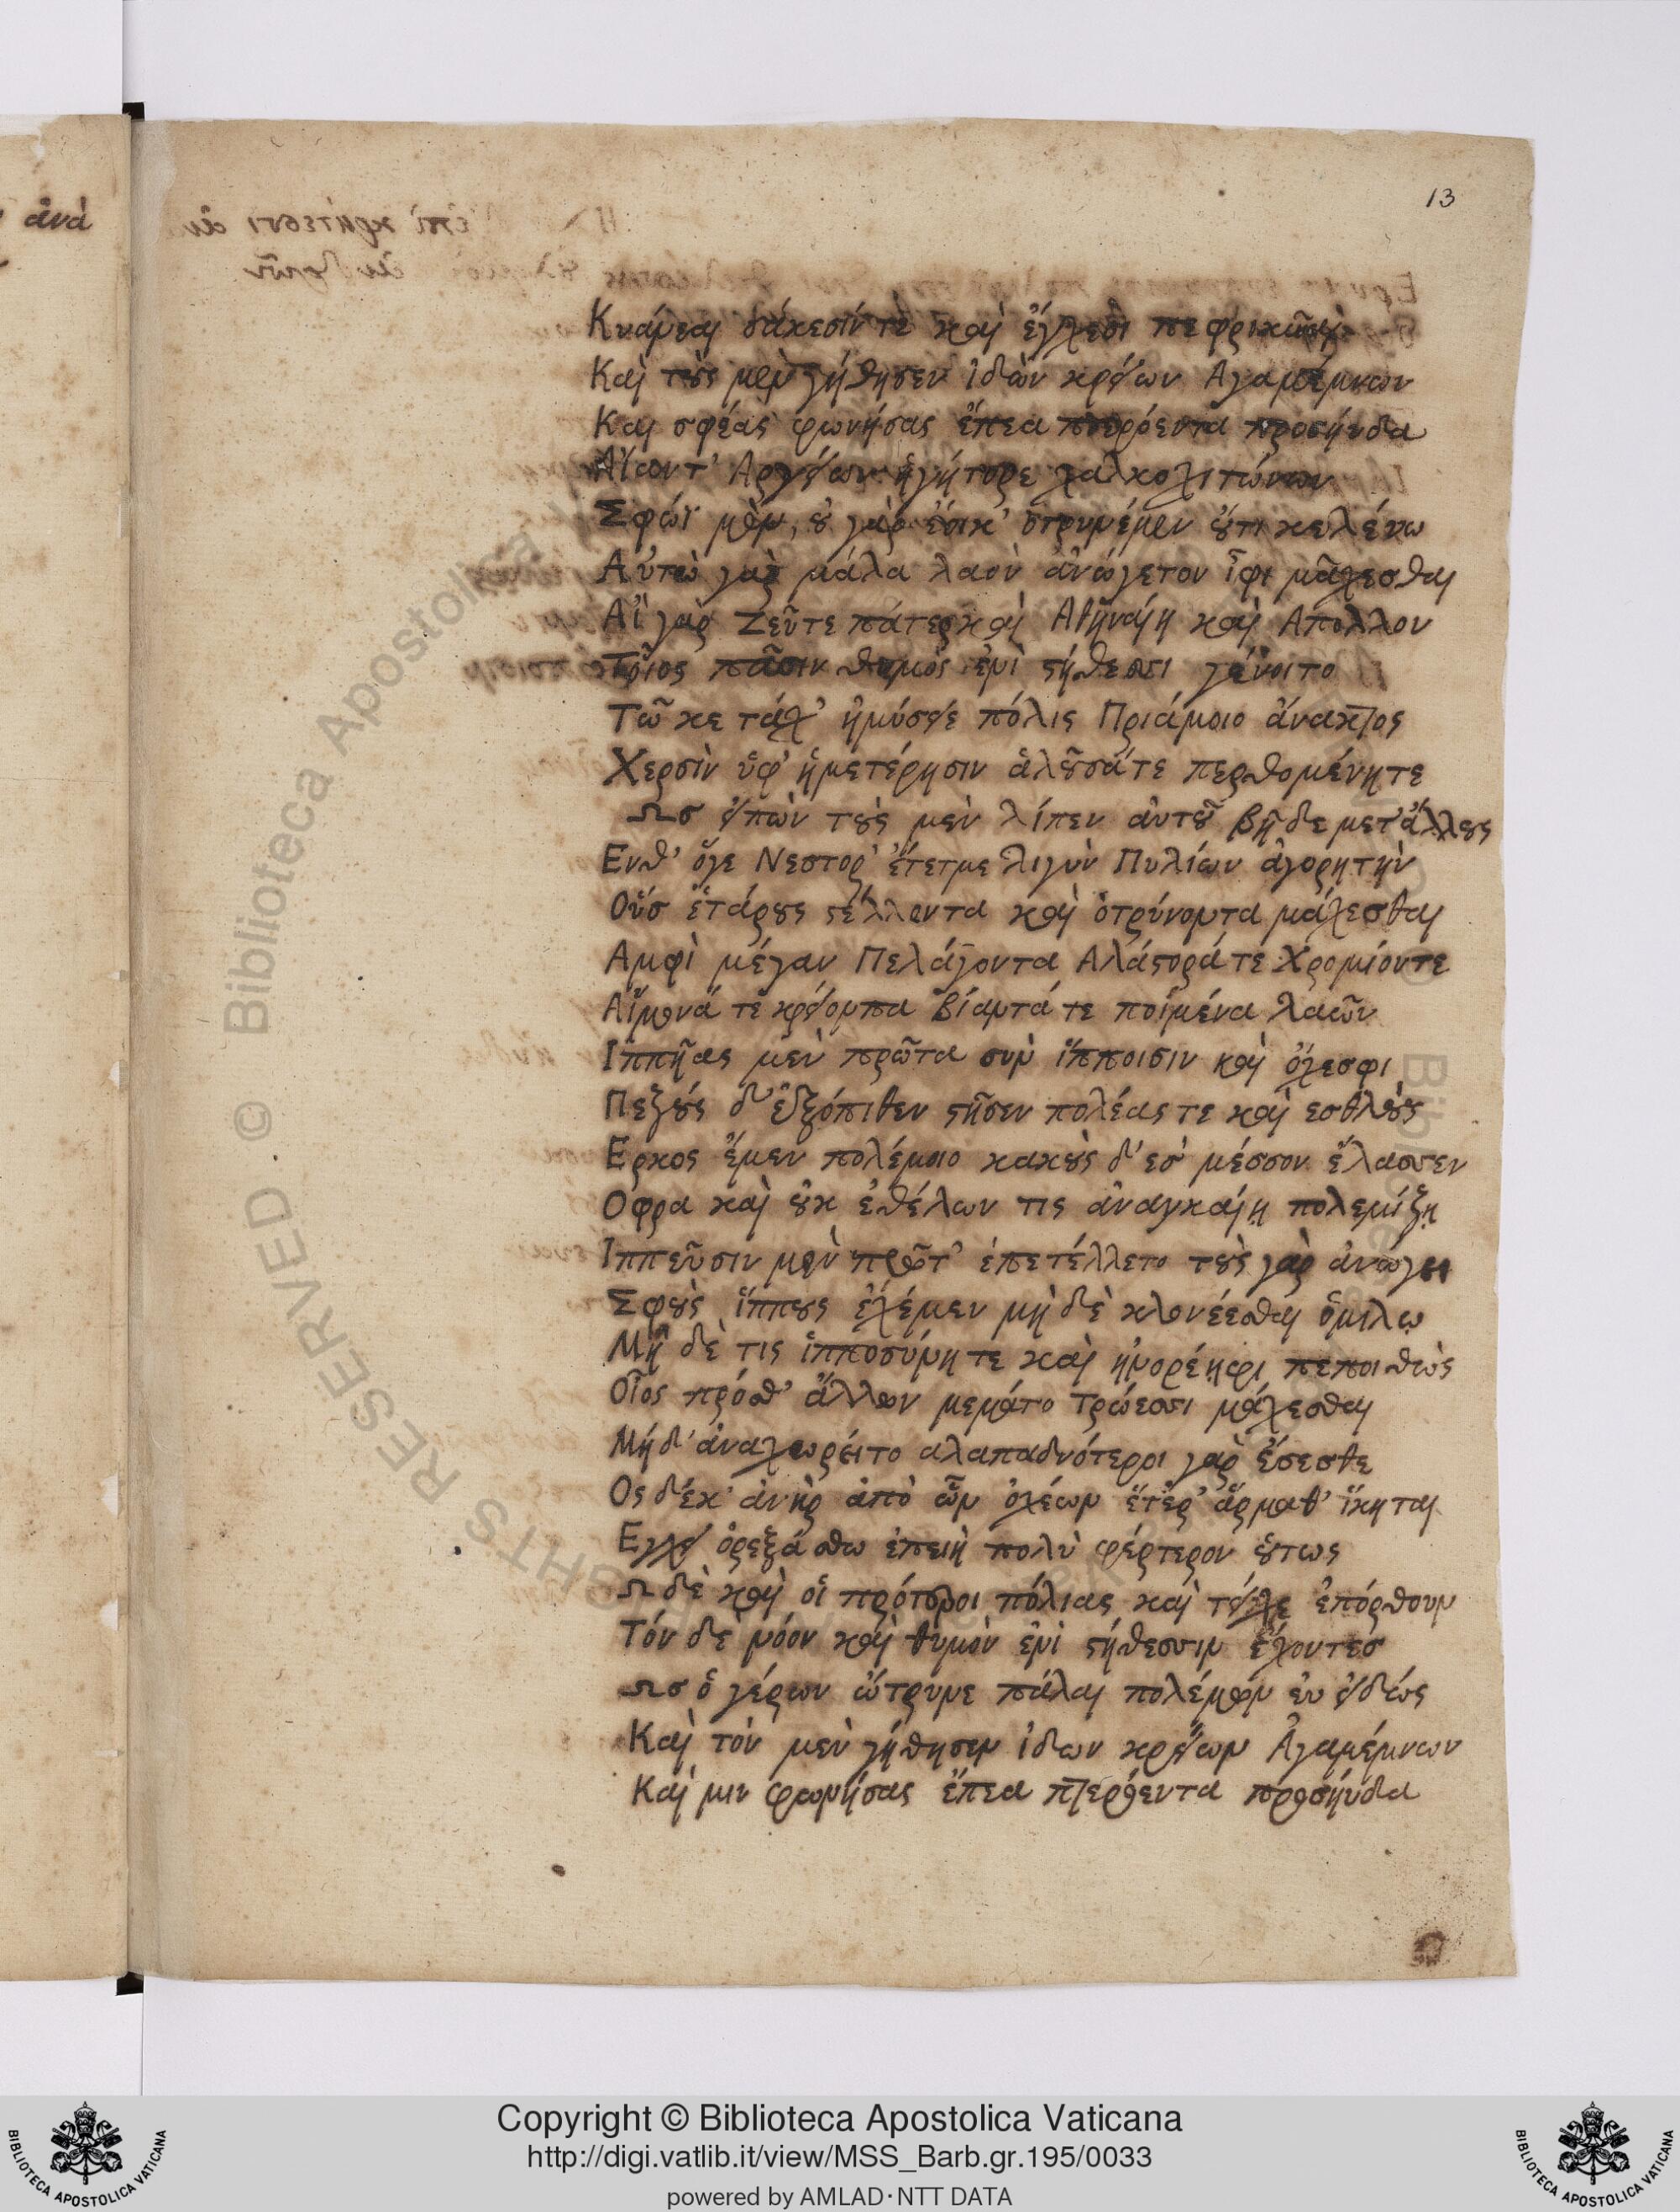 13
ἀνὰ
Κυάνεαι σάκεσίν τε καὶ ἔγχεσι πεφρικυῖαι
Καὶ τοὺς μὲν γήθησεν ἰδὼν κρείων Αγαμέμνων
Και σφέας φωνήσας ἔπεα πτερόεντα προσηύδα
Αἴαντ' Αργείων ἡγήτορε χαλκοχιτώνων
Σφῶϊ μὲν, οὐ γὰρ ἔοικ' ὀτρυνέμεν οὔτι κελεύω
Αὐτὼ γὰρ μάλα λαὸν ἀνώγετον ἶφι μάχεσθαι
Αἲ γὰρ Ζεῦτε πάτερ καὶ Αθηναίη καὶ Απολλον
Τοῖος πᾶσιν θυμὸς ἐνὶ στήθεσσι γένοιτο
Τῶ κε τάχ' ἠμύσειε πόλις Πριάμοιο ἄνακτος
Χερσὶν ὑφ' ἡμετέρησιν ἁλοῦσάτε περθομένητε
Ωσ εἰπὼν τοὺς μὲν λίπεν ἀυτοῦ βῆ δε μετ' ἄλλους
Ενθ' ὅγε Νεστορ' ἔτετμε λιγὺν Πυλίων ἀγορητὴν
Οὕσ ἑτάρους στέλλοντα καὶ ὀτρύνοντα μάχεσθαι
Αμφὶ μέγαν Πελάγοντα Αλάστοράτε Χρομίοντε
Αἵμονά τε κρείοντα Βίαντά τε ποιμένα λαῶν
Ιππῆας μὲν πρῶτα συν ἵπποισιν καὶ ὄχεσφι
Πεζοὺς δ' ἐξόπιθεν στῆσεν πολέας τε καὶ εσθλοὺς
Ερκος ἔμεν πολέμοιο κακοὺς δ' εσ μέσσον ἔλασσεν
Οφρα καὶ οὐκ ἐθέλων τις ἀναγκαίῃ πολεμίζῃ
Ιππεῦσιν μὲν πρῶτ' ἐπετέλλετο τοὺς γὰρ ἀνώγει
Σφοὺς ἵππους ἐχέμεν μὴ δὲ κλονέεσθαι ὁμίλῳ
Μὴ δέ τις ἱπποσύνῃ τε καὶ ἠνορέηφι πεποιθὼς
Οἶος πρόσθ' ἄλλων μεμάτο Τρώεσσι μάχεσθαι
Μήδ' ἀναχωρείτο αλαπαδνότεροι γὰρ ἔσεσθε
Ος δέκ' ἀνὴρ ἀπὸ ὧν ὀχέων ἕτερ' ἅρμαθ' ἵκηται
Εγχει ὀρεξάσθω ἐπειὴ πολὺ φέρτερον οὕτως
Ω δὲ καὶ οἱ πρότεροι πόλιας καὶ τείχε ἐπόρθουν
Τόν δε νόον καὶ θυμὸν ἐνὶ στήθεσσιν ἔχοντεσ
Ωσ ὁ γέρων ὤτρυνε πάλαι πολέμων ἐυ εἰδώς
Καὶ τὸν μεν γήθησεν ἰδων κρείων Ἀγαμέμνων
Καὶ μιν φωνήσας ἔπεα πτερόεντα προσηύδα
© Biblioteca Apostolica Vaticana
RIGHTS RESERVED
Copyright © Biblioteca Apostolica Vaticana
http://digi.vatlib.it/view/MSS_Barb.gr.195/0033
powered by AMLAD·NTT DATA
BIBLIOTECA APOSTOLICA VATICANA
BIBLIOTECA APOSTOLICA VATICANA